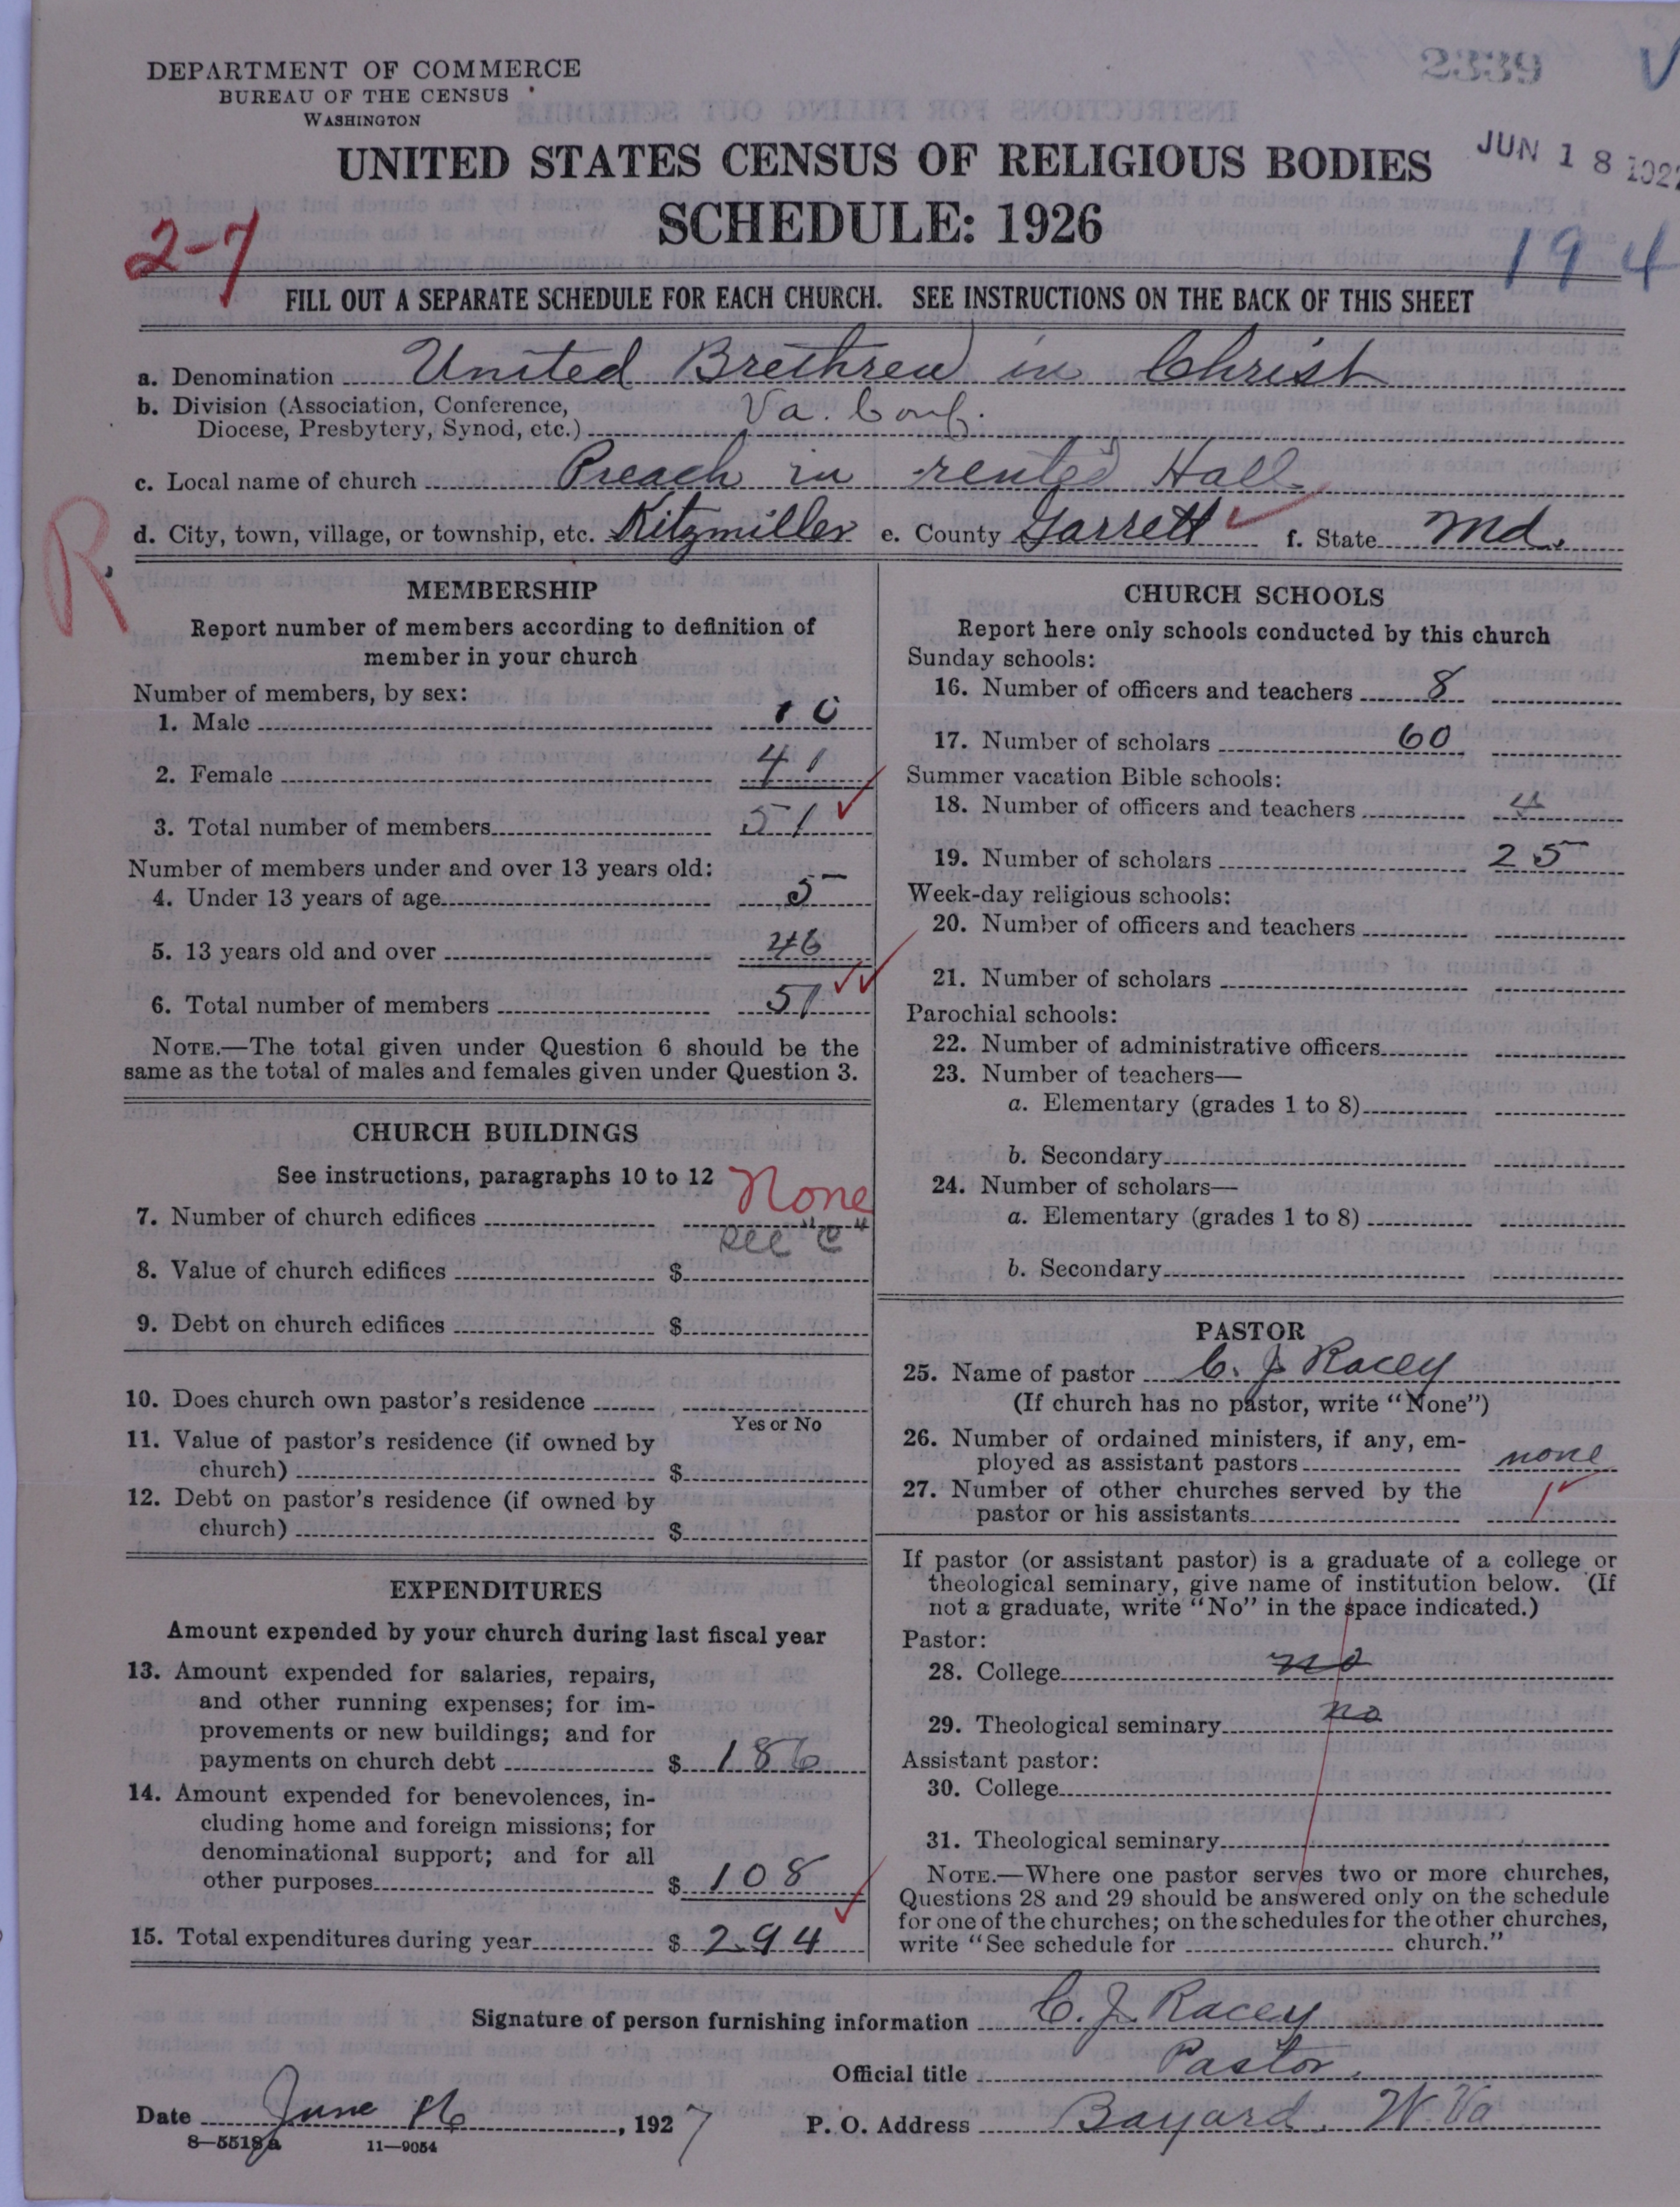 2339
DEPARTMENT OF COMMERCE
BUREAU OF THE CENSUS
WASHINGTON
UNITED STATES CENSUS OF RELIGIOUS BODIES
JUN 18 1927
SCHEDULE: 1926
2-7
194
FILL OUT A SEPARATE SCHEDULE FOR EACH CHURCH. SEE INSTRUCTIONS ON THE BACK OF THIS SHEET
a. Denomination United Brethren in Christ
b. Division (Association, Conference,
Diocese, Presbytery, Synod, etc.) Va. Conf.
c. Local name of church Preach in rented Hall
d. City, town, village, or township, etc. Kitzmiller e. County Garrett f. State Md.
R
MEMBERSHIP
Report number of members according to definition of
member in your church
Number of members, by sex:
1. Male 10
2. Female 41
3. Total number of members 51
Number of members under and over 13 years old:
4. Under 13 years of age 5
5. 13 years old and over 46
6. Total number of members 51
NOTE.—The total given under Question 6 should be the
same as the total of males and females given under Question 3.
CHURCH BUILDINGS
See instructions, paragraphs 10 to 12
7. Number of church edifices None
see "C"
8. Value of church edifices $
9. Debt on church edifices $
10. Does church own pastor's residence
Yes or No
11. Value of pastor's residence (if owned by
church) $
12. Debt on pastor's residence (if owned by
church) $
EXPENDITURES
Amount expended by your church during last fiscal year
13. Amount expended for salaries, repairs,
and other running expenses; for im-
provements or new buildings; and for
payments on church debt $ 186
14. Amount expended for benevolences, in-
cluding home and foreign missions; for
denominational support; and for all
other purposes $ 108
15. Total expenditures during year $ 294
CHURCH SCHOOLS
Report here only schools conducted by this church
Sunday schools:
16. Number of officers and teachers 8
17. Number of scholars 60
Summer vacation Bible schools:
18. Number of officers and teachers 4
19. Number of scholars 25
Week-day religious schools:
20. Number of officers and teachers
21. Number of scholars
Parochial schools:
22. Number of administrative officers
23. Number of teachers—
a. Elementary (grades 1 to 8)
b. Secondary
24. Number of scholars—
a. Elementary (grades 1 to 8)
b. Secondary
PASTOR
25. Name of pastor C. J. Racey
(If church has no pastor, write "None")
26. Number of ordained ministers, if any, em-
ployed as assistant pastors none
27. Number of other churches served by the
pastor or his assistants 1
If pastor (or assistant pastor) is a graduate of a college or
theological seminary, give name of institution below. (If
not a graduate, write "No" in the space indicated.)
Pastor:
28. College no
29. Theological seminary no
Assistant pastor:
30. College
31. Theological seminary
NOTE.—Where one pastor serves two or more churches,
Questions 28 and 29 should be answered only on the schedule
for one of the churches; on the schedules for the other churches,
write "See schedule for church."
Signature of person furnishing information C. J. Racey
Official title Pastor.
Date June 16, 1927 P. O. Address Bayard, W. Va
8—5518a 11—9054